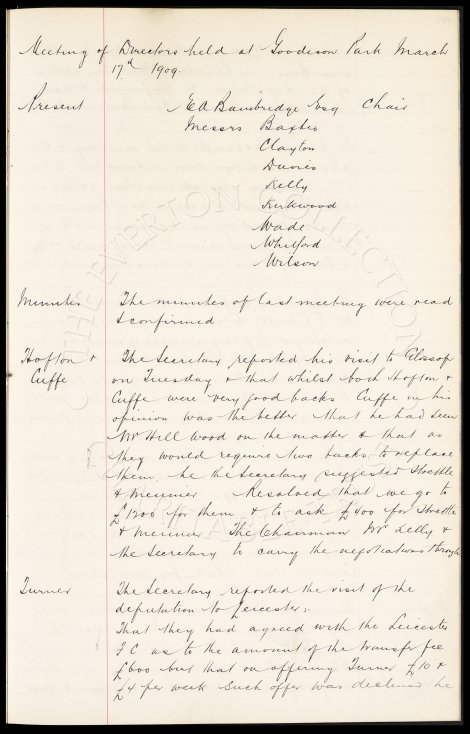 Meeting of Directors held at Goodison Park March
17th 1909.
Present E A Bainbridge Esq Chair
Messrs Baxter
Clayton
Davies
Kelly
Kirkwood
Wade
Whitford
Wilson
Minutes The minutes of last meeting were read
& confirmed
Hofton & The Secretary reported his visit to Glossop
Cuffe on Tuesday & that whilst both Hofton &
Cuffe were very good backs Cuffe in his
opinion was the better that he had seen
Mr Hill Wood on the matter & that as
they would require two backs to replace
them, he the Secretary suggested Strettle
& Meunier Resolved that we go to
£1200 for them & to ask £400 for Strettle
& Meunier The Chairman Mr Kelly &
the Secretary to carry the negotiations through
Turner The Secretary reported the visit of the
deputation to Leicester:
That they had agreed with the Leicester
F C as to the amount of the transfer fee
£600 but that on offering Turner £10 &
£4 per week such offer was declined he
THE EVERTON COLLECTION